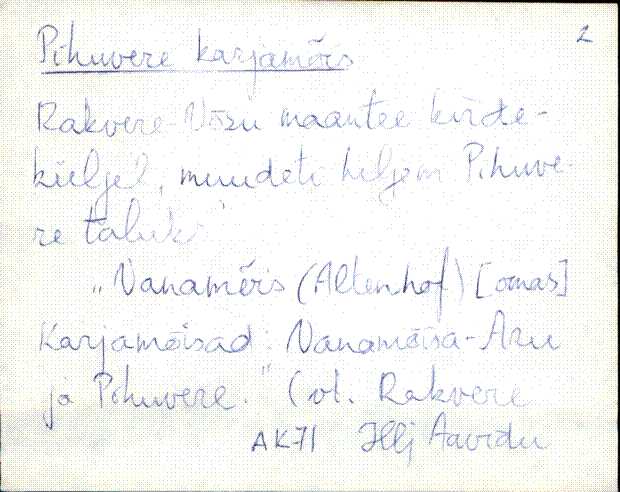 2
Pihuvere karjamõis
Rakvere-Võsu maantee kirde-
küljel, muudeti hiljem Pihuve-
re taluks
„Vanamõis (Altenhof) [omas]
Karjamõisad: Vanamõisa-Aru
ja Pihuvere." (vt. Rakvere
AK71 Illj Aavrdu